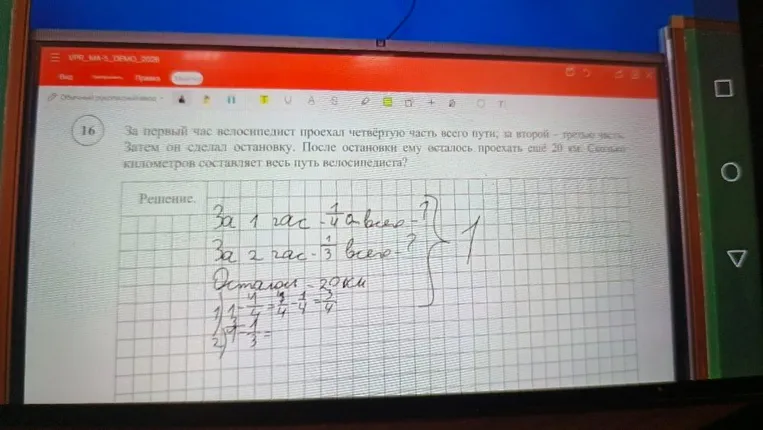 VPR_MA-5_DEMO_2026
Вид Правка
16
За первый час велосипедист проехал четвёртую часть всего пути, за второй – третью часть.
Затем он сделал остановку. После остановки ему осталось проехать ещё 20 км. Сколько
километров составляет весь путь велосипедиста?
Решение.
За 1 час - 1/4 всего - ?
За 2 час - 1/3 всего - ?
- 20 км
1
1) 1 - 1/4 = 4/4 - 1/4 = 3/4
2) - 1/3 =